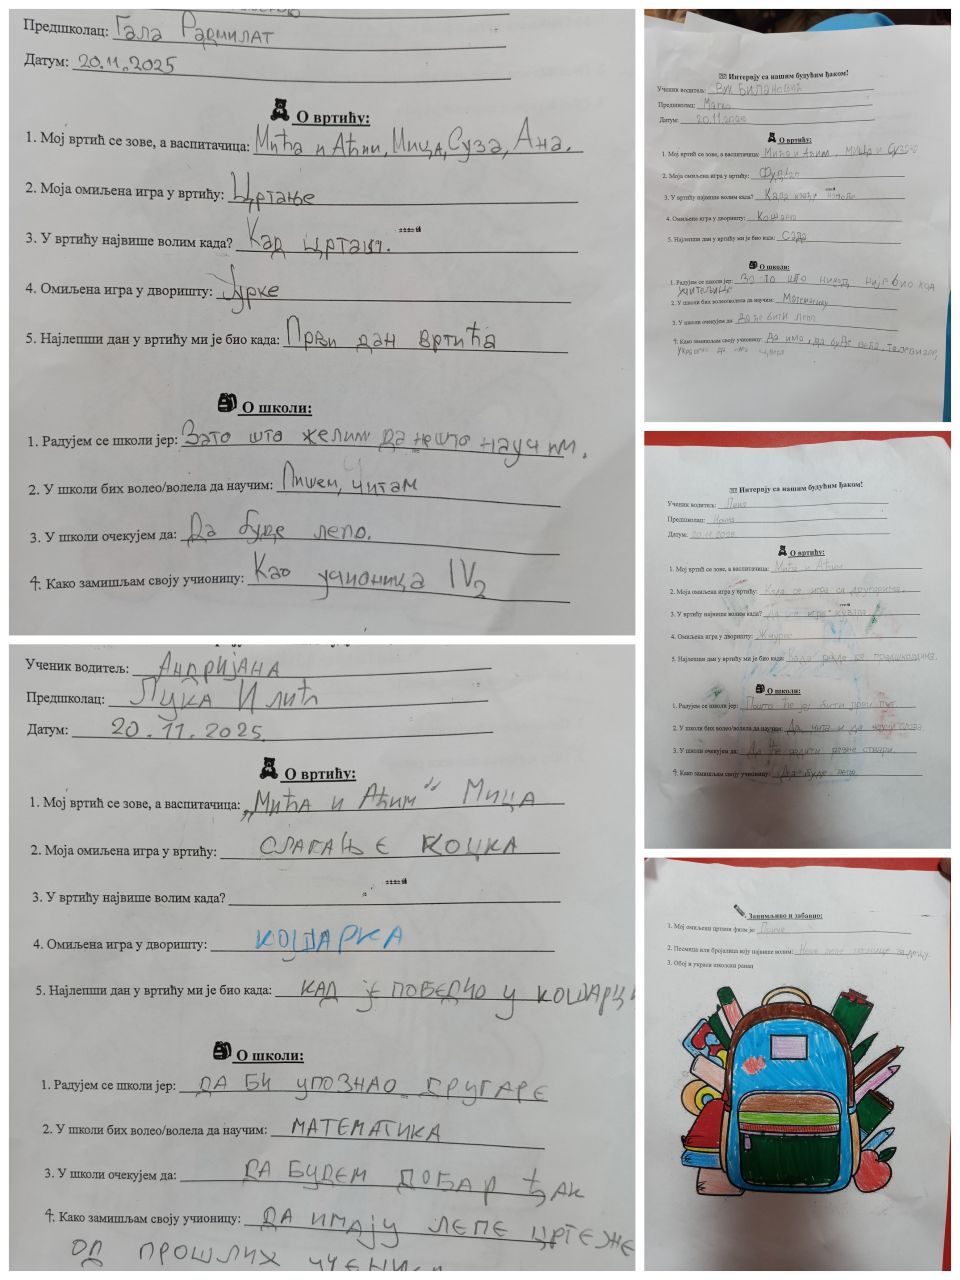 Предшколац: Гала Радмилат
Датум: 20.11.2025
О вртићу:
1. Мој вртић се зове, а васпитачица: Мића и Аћим, Мица, Суза, Ана.
2. Моја омиљена игра у вртићу: Цртање
3. У вртићу највише волим када? Кад цртам.
4. Омиљена игра у дворишту: Јурке
5. Најлепши дан у вртићу ми је био када: Први дан вртића
О школи:
1. Радујем се школи јер: Зато што желим да нешто научим.
2. У школи бих волео/волела да научим: Пишем, читам
3. У школи очекујем да: Да буде лепо.
4. Како замишљам своју учионицу: Као учионица IV2
Ученик водитељ: Андријана
Предшколац: Лука Илић
Датум: 20.11.2025.
О вртићу:
1. Мој вртић се зове, а васпитачица: „Мића и Аћим" Мица
2. Моја омиљена игра у вртићу: СЛАГАЊЕ КОЦКА
3. У вртићу највише волим када?
4. Омиљена игра у дворишту: КОШАРКА
5. Најлепши дан у вртићу ми је био када: КАД ЈЕ ПОБЕДИО У КОШАРЦИ
О школи:
1. Радујем се школи јер: ДА БИ УПОЗНАО ДРУГАРЕ
2. У школи бих волео/волела да научим: МАТЕМАТИКА
3. У школи очекујем да: ДА БУДЕМ ДОБАР ЂАК
4. Како замишљам своју учионицу: ДА ИМАЈУ ЛЕПЕ ЦРТЕЖЕ
ОД ПРОШЛИХ
Интервју са нашим будућим ђаком!
Ученик водитељ: Вук
Предшколац:
Датум: 20.11.2025
О вртићу:
1. Мој вртић се зове, а васпитачица: Мића и Аћим, Мица и
2. Моја омиљена игра у вртићу: Фудбал
3. У вртићу највише волим када? Када
4. Омиљена игра у дворишту:
5. Најлепши дан у вртићу ми је био када: Сада
О школи:
1. Радујем се школи јер: Зато што никад није био код
учитељице
2. У школи бих волео/волела да научим: Математику
3. У школи очекујем да: Да ће бити лепо
4. Како замишљам своју учионицу: Да има, да буде већа, телевизор,
Интервју са нашим будућим ђаком!
Ученик водитељ:
Предшколац:
Датум: 20.11.2025.
О вртићу:
1. Мој вртић се зове, а васпитачица: Мића и Аћим
2. Моја омиљена игра у вртићу: Када се игра са другарима.
3. У вртићу највише волим када? Да се игра
4. Омиљена игра у дворишту: Жмурке
5. Најлепши дан у вртићу ми је био када:
О школи:
1. Радујем се школи јер: Пошто ће јој бити први пут
2. У школи бих волео/волела да научим: Да чита и да научи слова
3. У школи очекујем да: Да ће радити разне ствари.
4. Како замишљам своју учионицу: Да буде лепа.
Занимљиво и забавно:
1. Мој омиљени цртани филм је:
2. Песмица или бројалица коју највише волим:
3. Обој и украси школски ранац